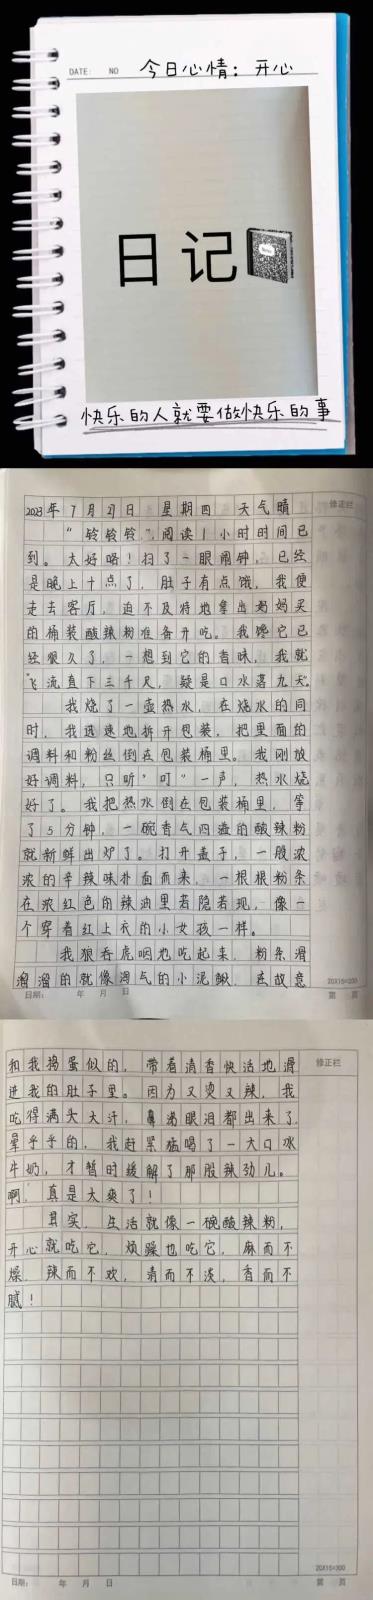 DATE: NO 今日心情：开心
日记
快乐的人就要做快乐的事
2023年7月27日 星期四 天气晴 修正栏
“铃铃铃”，阅读1小时时间已
到。太好咯！扫了一眼闹钟，已经
是晚上十点了，肚子有点饿，我便
走去客厅，迫不及待地拿出妈妈买
的桶装酸辣粉准备开吃。我馋它已
经很久了，一想到它的香味，我就
“飞流直下三千尺，疑是口水落九天”。
我烧了一壶热水，在烧水的同
时，我迅速地拆开包装，把里面的
调料和粉丝倒在包装桶里。我刚放
好调料，只听“叮”一声，热水烧
好了。我把热水倒在包装桶里，等
了5分钟，一碗香气四溢的酸辣粉
就新鲜出炉了。打开盖子，一股浓
浓的辛辣味扑面而来，一根根粉条
在浓红色的辣油里若隐若现，像一
个穿着红上衣的小女孩一样。
我狼吞虎咽地吃起来，粉条滑
溜溜的就像淘气的小泥鳅，在故意
20X15=300
日期： 年 月 日 第 页
和我捣蛋似的，带着清香快活地滑 修正栏
进我的肚子里。因为又烫又辣，我
吃得满头大汗，鼻涕眼泪都出来了，
晕乎乎的，我赶紧猛喝了一大口水
牛奶，才暂时缓解了那股辣劲儿。
啊，真是太爽了！
其实，生活就像一碗酸辣粉，
开心就吃它，烦躁也吃它，麻而不
燥，辣而不欢，清而不淡，香而不
腻！
20X15=300
日期： 年 月 日 第 页